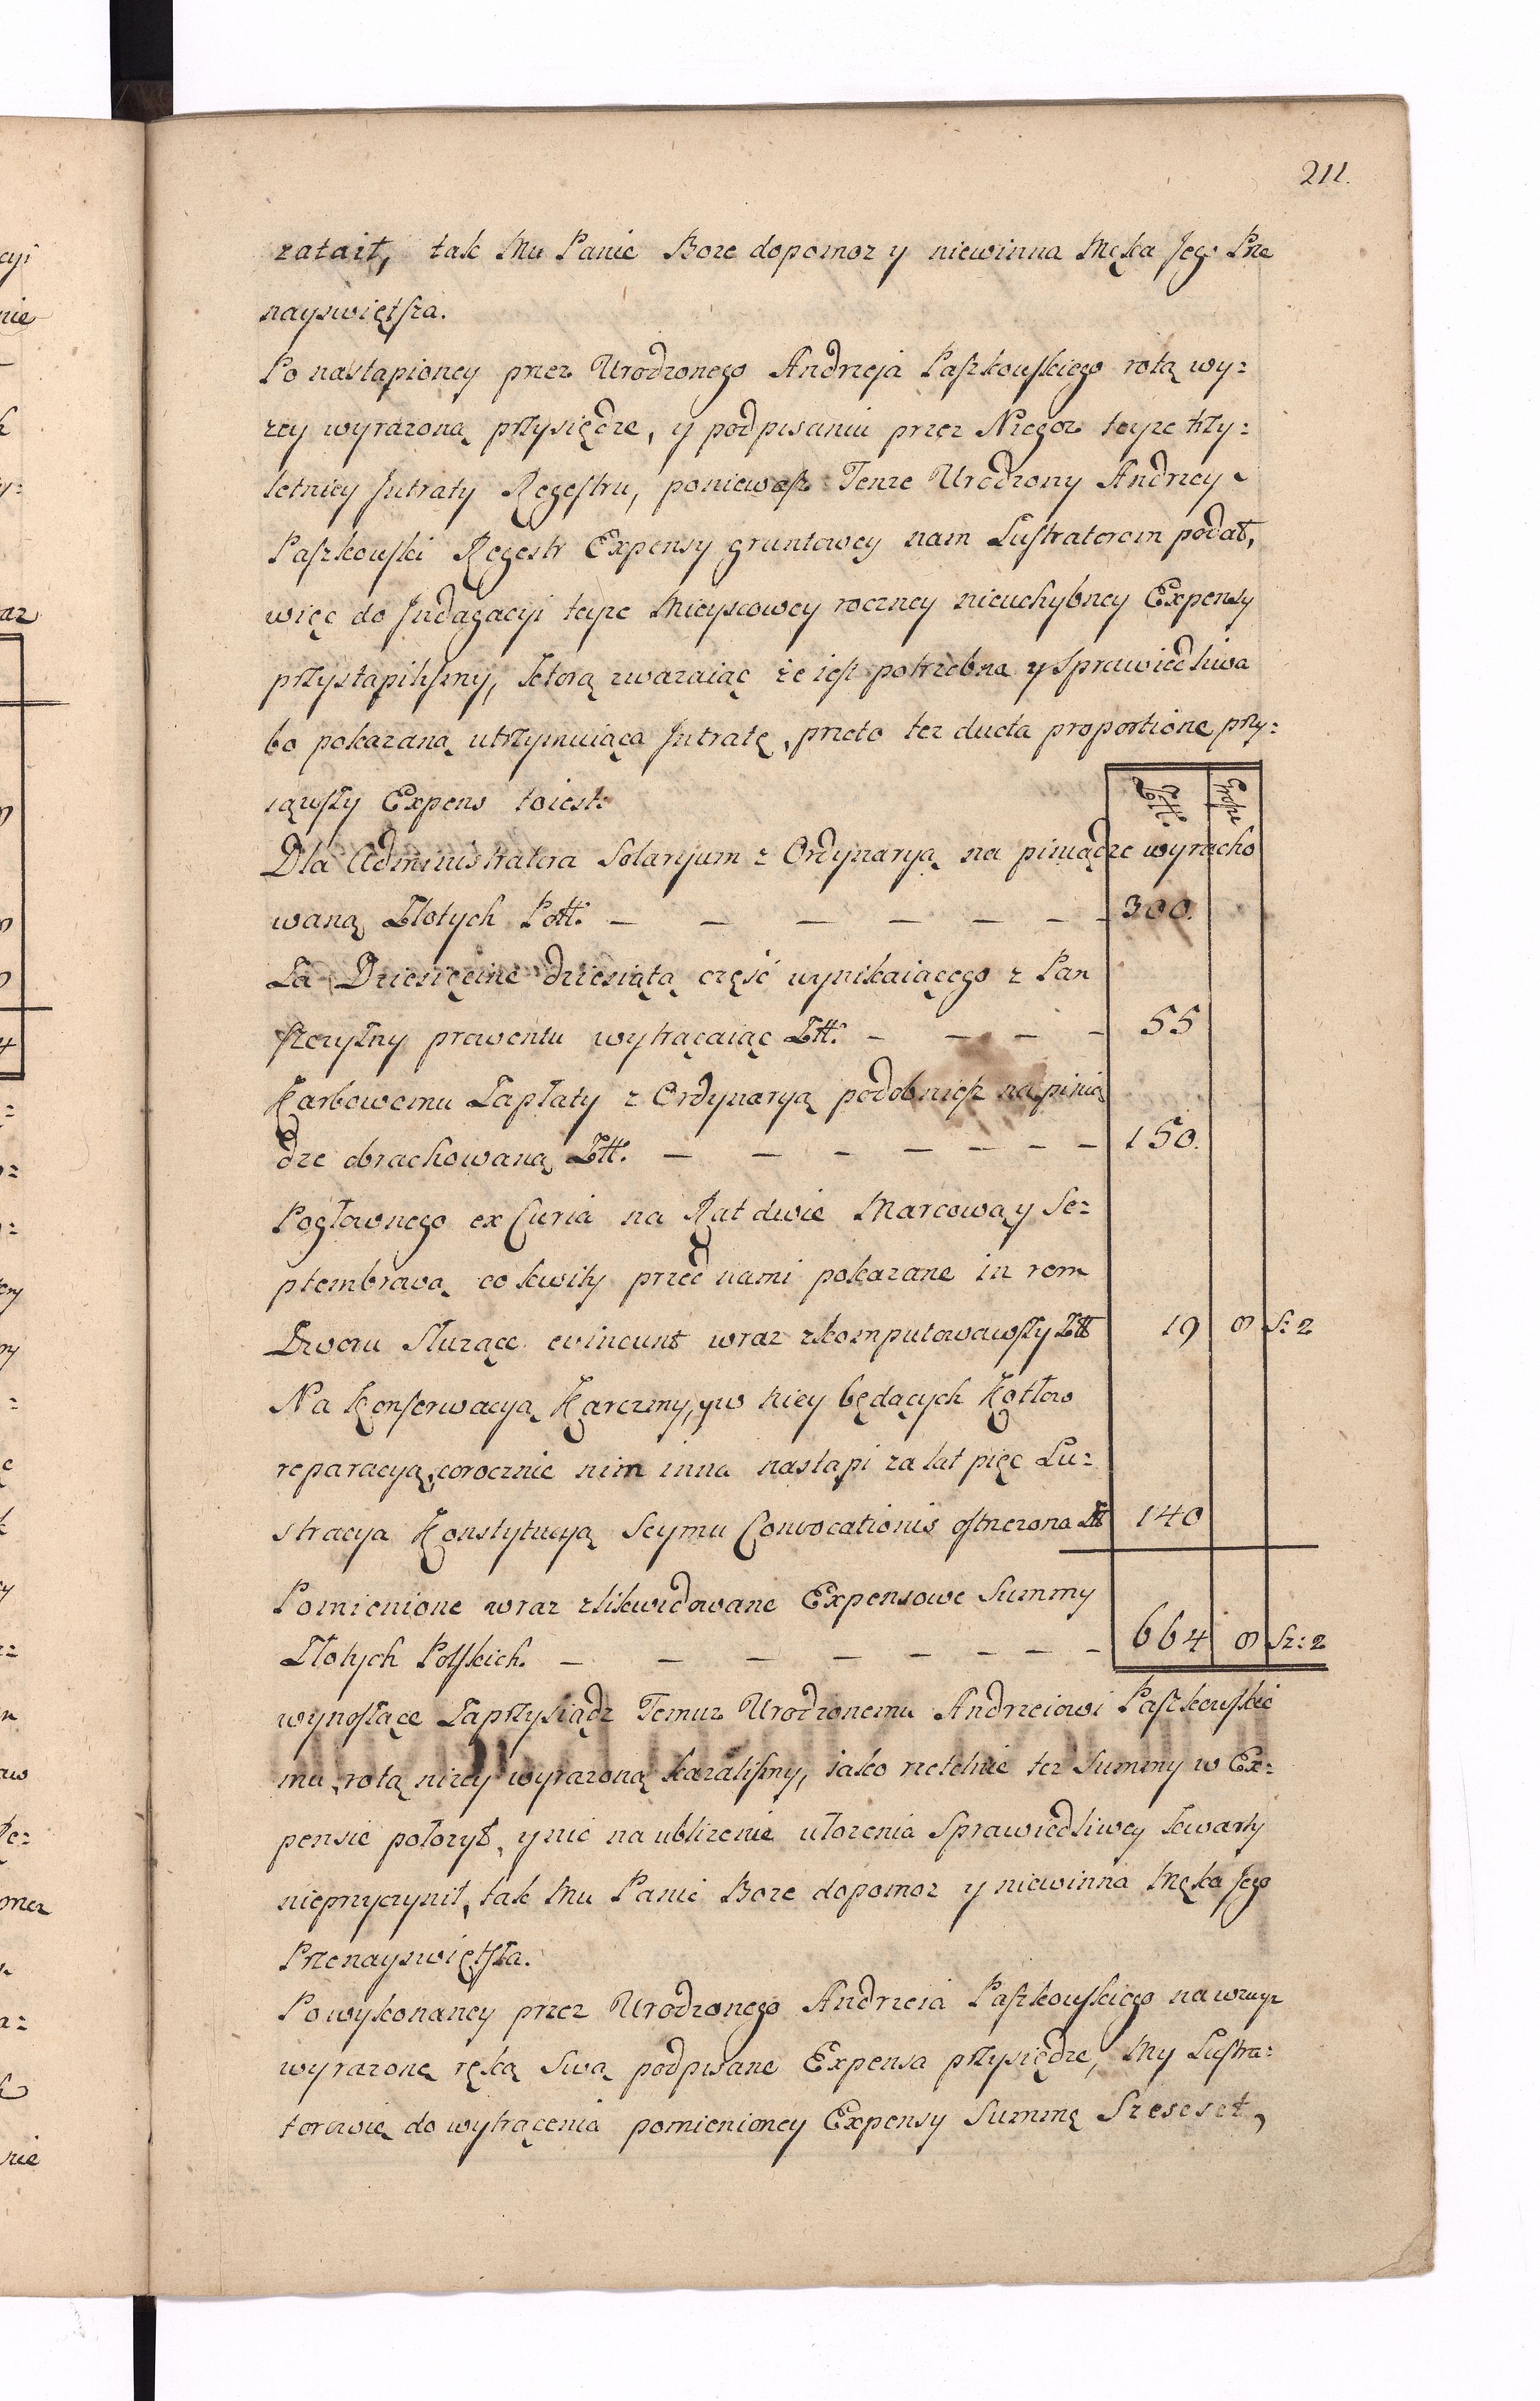 211.
zataił, tak Mu Panie Boze dopomoz y niewinna Męka Jego Prze
nayswiętsza.
Po nastąpioney przez Urodzonego Andrzeja Paszkowskiego rotą wy=
zey wyrazoną przysiędze, y podpisaniu przez Niegoz teyze trzy=
letniey Jntraty Regestru, poniewasz Tenze Urodzony Andrzey
Paszkowski Regestr Expensy gruntowey nam Lustratorom podał,
więc do Jndagacyi teyze Mieyscowey roczney nieuchybney Expensy
przystąpiliszmy, ktorą zwazaiąc że iest potrzebna y sprawiedliwa
bo pokazaną utrzymuiąca Jntratę, przeto tez ducta proportione przy=
iąwszy Expens toiest:
Złł. Grosze
Dla Administratora Solaryum z Ordynaryą na piniądze wyracho
waną Złotych Poll. — — — — — — 300.
Za Dziesięcinę dziesiątą część wynikaiącego z Pan
szczyzny prowentu wytrącaiąc Złł. — — — — 55
Karbowemu Zapłaty z Ordynaryą podobniesz na pinią
dze obrachowaną Złł. — — — — — — — 150.
Pogłownego ex Curia na Rat dwie Marcową y Se=
ptembrową co kwity przed nami pokazane in rem
Dworu Służące evincunt wraz zkomputowawszy Złł 19 m Sz 2
Na Konserwacyą Karczmy, y w niey będących Kotłow
reparacyą, corocznie nim inna nastąpi za lat pięc Lu=
stracya Konstytucyą Seymu Convocationis ostrzezona Złł 140
Pomienione wraz zlikwidowane Expensowe Summy
Złotych Polskich. — — — — — — — 664 m Sz: 2
wynoszące Zaprzysiądz Temuz Urodzonemu Andrzeiowi Paszkowskie
mu, rotą nizey wyrazoną kazaliszmy, iako rzetelnie tez Summy w Ex=
pensie połozył, y nic na ublizenie ułozenia Sprawiedliwey kwarty
nieprzyczynił, tak Mu Panie Boze dopomoz y niewinna Męka Jego
Przenayswiętsza.
Po wykonaney przez Urodzonego Andrzeia Paszkowskiego na wzwyz
wyrazone ręką Swą podpisane Expensa przysiędze, My Lustra=
torowie do wytrącenia pomienioney Expensy Summę Szescset,